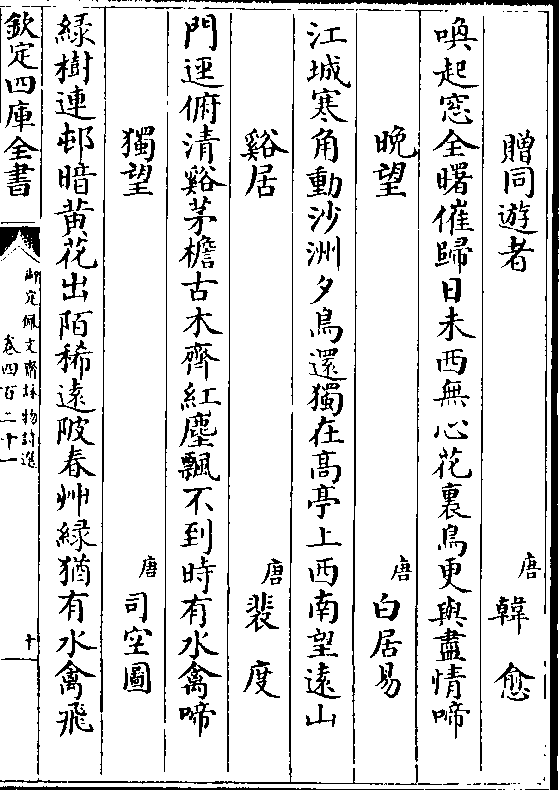 贈同遊者　唐　韓愈
喚起窓全曙催歸日未西無心花裏鳥更與盡情啼
晩望　唐　白居易
江城寒角動沙洲夕鳥還獨在髙亭上西南望逺山
谿居　唐　裴度
門逕俯清谿茅檐古木齊紅塵飄不到時有水禽啼
獨望　唐　司空圖
緑樹連邨暗黄花出陌稀逺陂春艸緑猶有水禽飛
欽定四庫全書
御定佩文齋詠物詩選
卷四百二十一
十